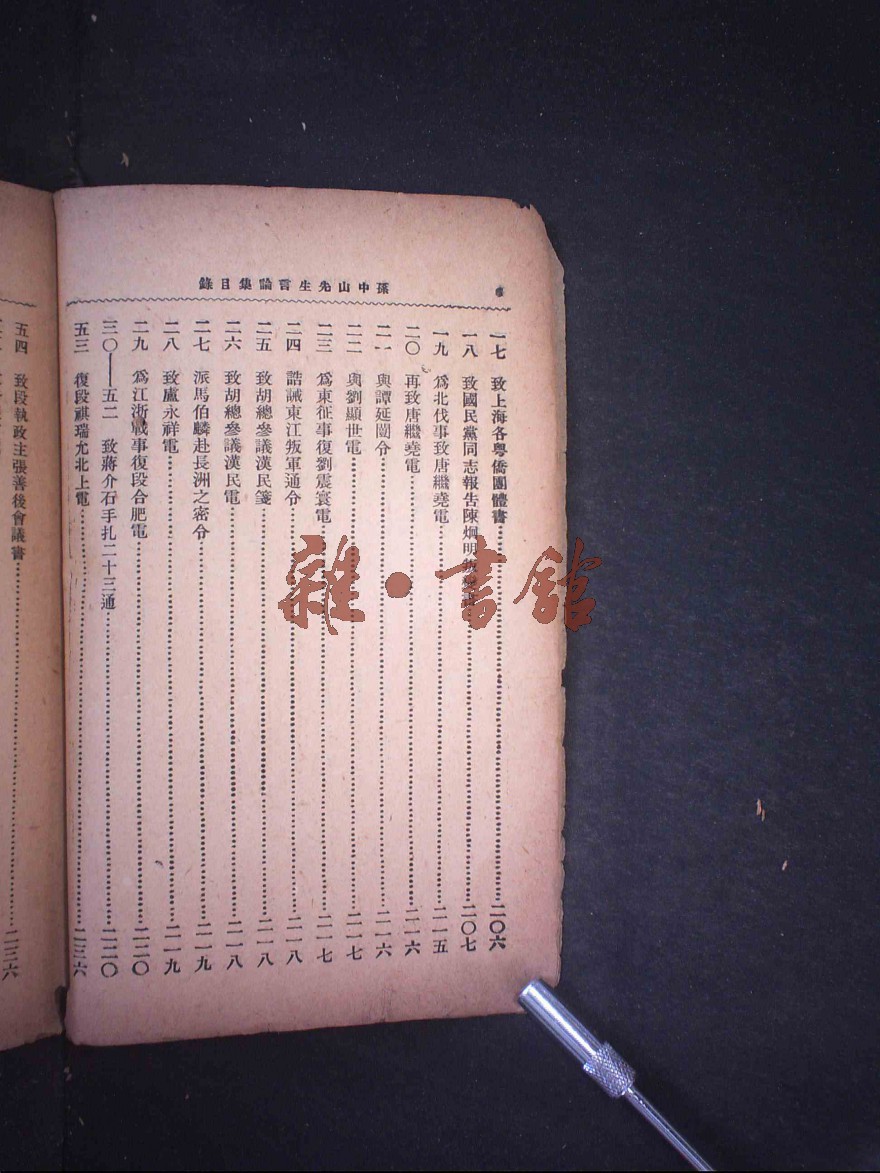 孫中山先生言論集目錄
一七 致上海各粵僑團體書……二〇六
一八 致國民黨同志報告陳炯明叛變書……二〇七
一九 爲北伐事致唐繼堯電……二一五
二〇 再致唐繼堯電……二一六
二一 與譚延闓令……二一六
二二 與劉顯世電……二一七
二三 爲東征事復劉震寰電……二一七
二四 誥誡東江叛軍通令……二一八
二五 致胡總參議漢民箋……二一八
二六 致胡總參議漢民電……二一八
二七 派馬伯麟赴長洲之密令……二一九
二八 致盧永祥電……二一九
二九 爲江浙戰事復段合肥電……二二〇
三〇——五二 致蔣介石手扎二十三通……二二〇
五三 復段祺瑞允北上電……二三六
五四 致段執政主張善後會議書……二三六
雜·書館